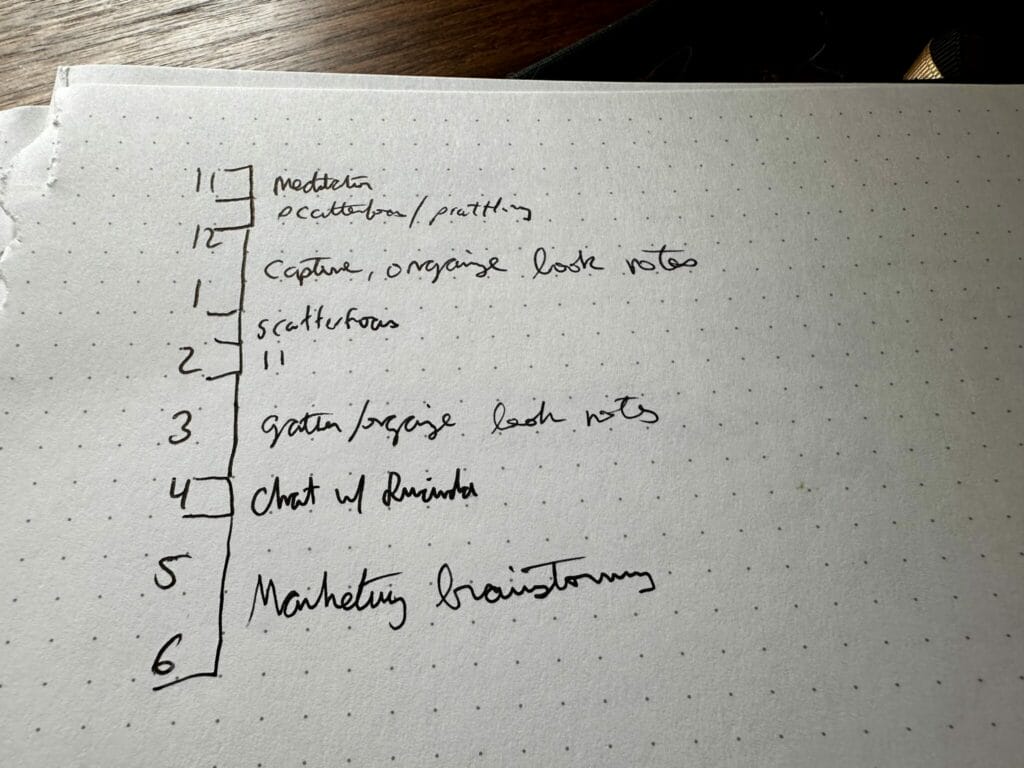 11 meditation
scatterfocus / prattling
12
capture, organize book notes
1
scatterfocus
2 11
3 gather/organize book notes
4 Chat w/
5
Marketing brainstorming
6